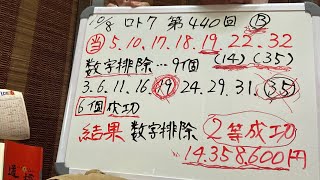 10/8 ロト7 第440回 B
当 5.10.17.18.19.22.32
数字排除…9個 (14) (35)
3.6.11.16.19.24.29.31.35
6個成功
結果 数字排除 2等成功
14.358.600円